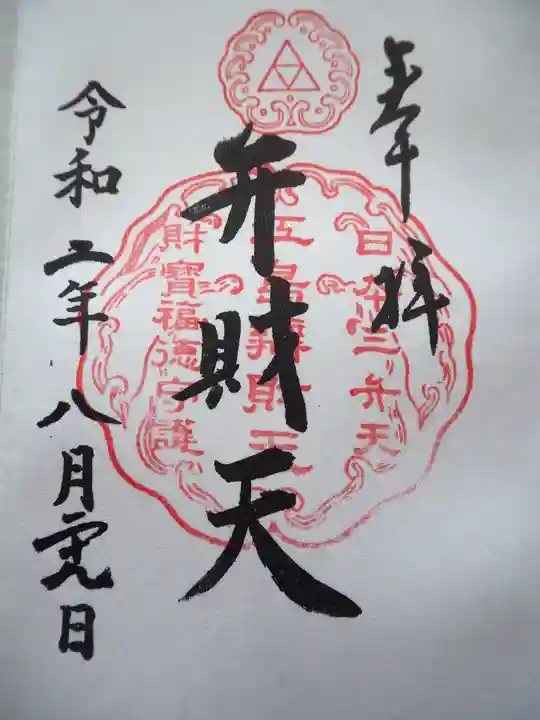 奉拝
日本三弁天
江島辨財天
財寶福徳守護
弁財天
令和二年八月九日